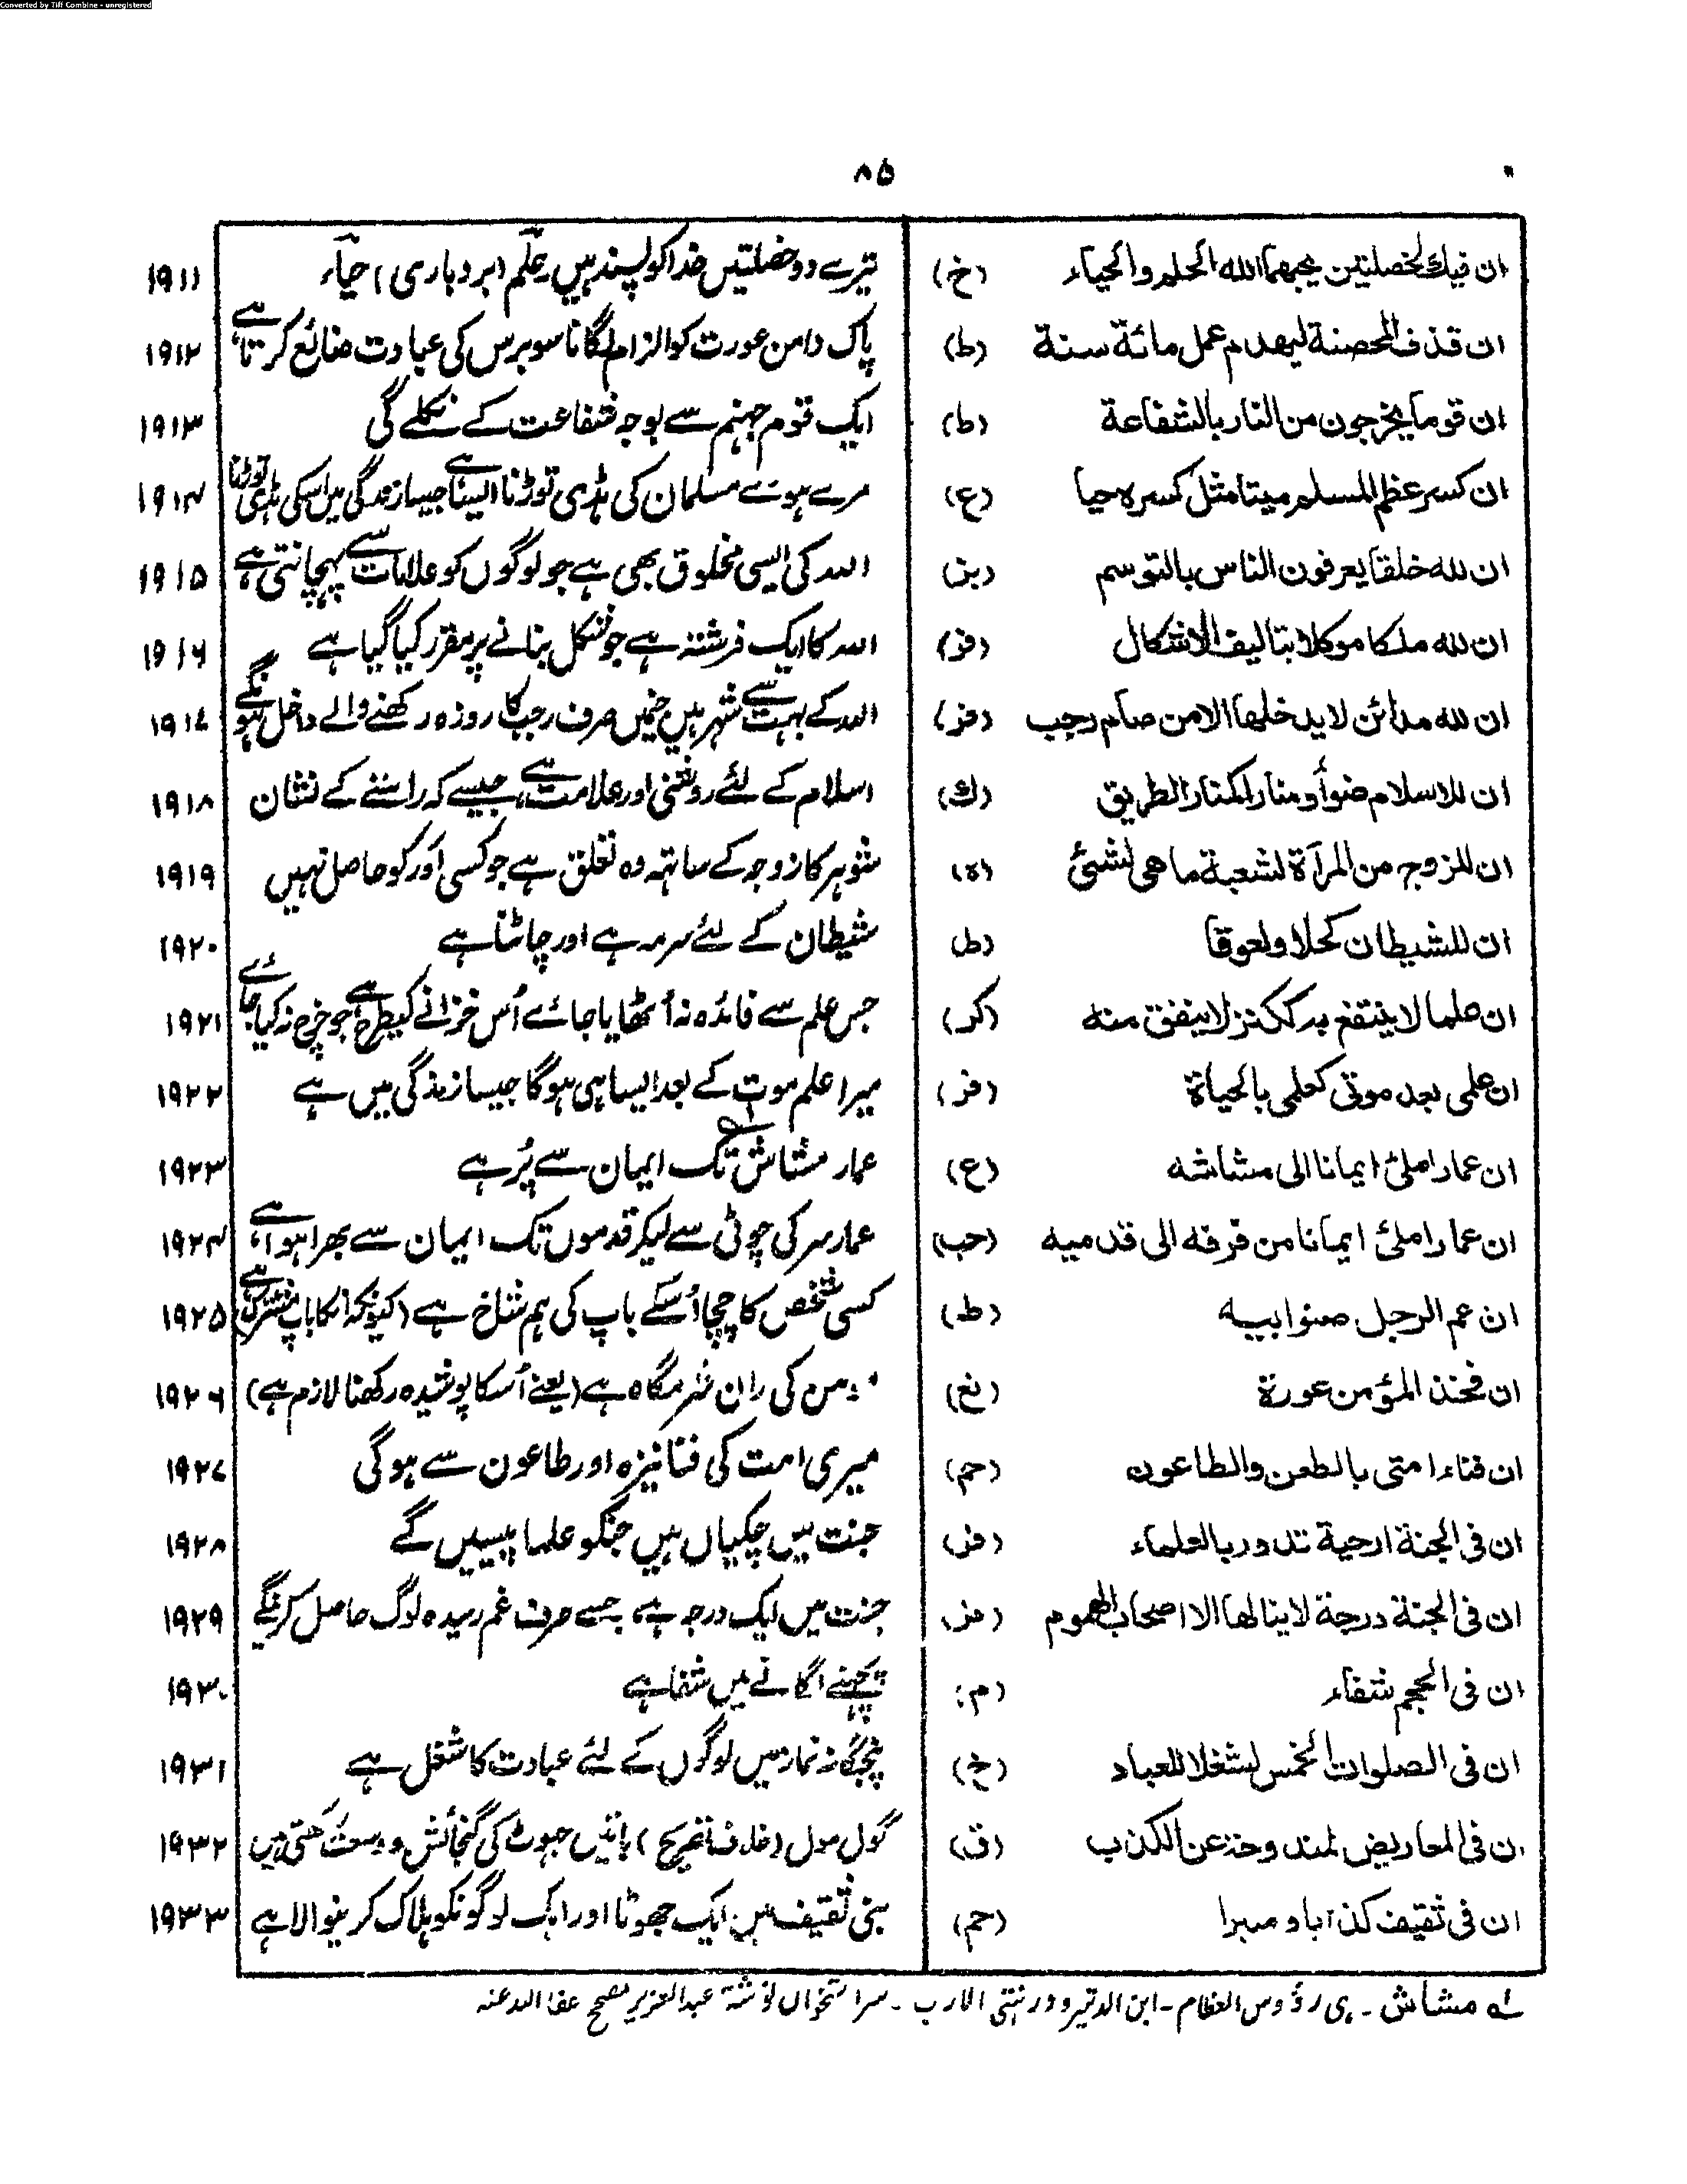 Converted by Tiff Combine - unregistered
۸۵
ان فيك لخصلتين يحبهما الله الحلم والحياء (خ) تیرے دو خصلتیں خدا کو پسند ہیں۔ حلم (بردباری) حیاء ۱۹۱۱
ان قذف المحصنة ليهدم عمل مائة سنة (ط) پاک دامن عورت کو الزام لگانا سو برس کی عبادت ضائع کرتا ہے ۱۹۱۲
ان قوما يخرجون من النار بالشفاعة (ط) ایک قوم جہنم سے بوجہ شفاعت کے نکلے گی ۱۹۱۳
ان كسر عظم المسلم ميتا مثل كسره حيا (ع) مرے ہوئے مسلمان کی ہڈی توڑنا ایسا ہے جیسا زندگی میں اسکی ہڈی توڑنا ۱۹۱۴
ان لله خلقا يعرفون الناس بالتوسم (بز) اللہ کی ایسی مخلوق بھی ہے جو لوگوں کو علامات سے پہچانتی ہے ۱۹۱۵
ان لله ملكا موكلا بتاليف الاشكال (فر) اللہ کا ایک فرشتہ ہے جو شکل بنانے پر مقرر کیا گیا ہے ۱۹۱۶
ان لله مدائن لا يدخلها الا من صام رجب (فر) اللہ کے بہت سے شہر ہیں جنمیں صرف رجب کا روزہ رکھنے والے داخل ہونگے ۱۹۱۷
ان للاسلام ضوأ ومنارا كمنار الطريق (ك) اسلام کے لئے روشنی اور علامت ہے، جیسے کہ راستے کے نشان ۱۹۱۸
ان للزوج من المرآة لشعبة ما هى لشئ (ه) شوہر کا زوجہ کے ساتہہ وہ تعلق ہے جو کسی اور کو حاصل نہیں ۱۹۱۹
ان للشيطان كحلا ولعوقا (ط) شیطان کے لئے سرمہ ہے اور چاٹنا ہے ۱۹۲۰
ان علما لا ينتفع به ككنز لا ينفق منه (كر) جس علم سے فائدہ نہ اُٹھایا جائے اُس خزانے کیطرح ہے جو خرچ نہ کیا جائے ۱۹۲۱
ان علمى بعد موتى كعلمى بالحياة (فر) میرا علم موت کے بعد ایسا ہی ہوگا جیسا زندگی میں ہے ۱۹۲۲
ان عمارا ملئ ايمانا الى مشاشه (ع) عمار مشاش تک ایمان سے پُر ہے ۱۹۲۳
ان عمارا ملئ ايمانا من قرقه الى قدميه (حب) عمار سر کی چوٹی سے لیکر قدموں تک ایمان سے بھرا ہوا ہے ۱۹۲۴
ان عم الرجل صنو ابيه (ط) کسی شخص کا چچا اُسکے باپ کی ہم شاخ ہے (کیونکہ انکا باپ مشترک ہے) ۱۹۲۵
ان فخذ المؤمن عورة (نع) مومن کی ران شرمگاہ ہے (یعنے اُسکا پوشیدہ رکھنا لازم ہے) ۱۹۲۶
ان فناء امتى بالطعن والطاعون (حم) میری امت کی فنا نیزہ اور طاعون سے ہوگی ۱۹۲۷
ان فى الجنة ارحية تدور بالعلماء (فر) جنت میں چکیاں ہیں جنکو علما پیسیں گے ۱۹۲۸
ان فى الجنة درجة لا ينالها الا اصحاب الهموم (فر) جنت میں ایک درجہ ہے، جسے صرف غم رسیدہ لوگ حاصل کرینگے ۱۹۲۹
ان فى الحجم شفاء (م) پچھنے لگانے میں شفا ہے ۱۹۳۰
ان فى الصلوات الخمس لشغلا للعباد (خ) پنجگانہ نماز میں لوگوں کے لئے عبادت کا شغل ہے ۱۹۳۱
ان فى المعاريض لمندوحة عن الكذب (ق) گول مول (خلاف تصریح) باتیں جہوٹ کی گنجائش و وسعت رکھتی ہیں ۱۹۳۲
ان فى ثقيف كذابا ومبيرا (حم) بنی ثقیف میں ایک جھوٹا اور ایک لوگونکو ہلاک کرنیوالا ہے ۱۹۳۳
لہ مشاش۔ ہی رؤوس العظام۔ ابن الاثیر و در منتہی الارب۔ سر استخواں نوشتہ عبدالعزیز مصحح عفا اللہ عنہ